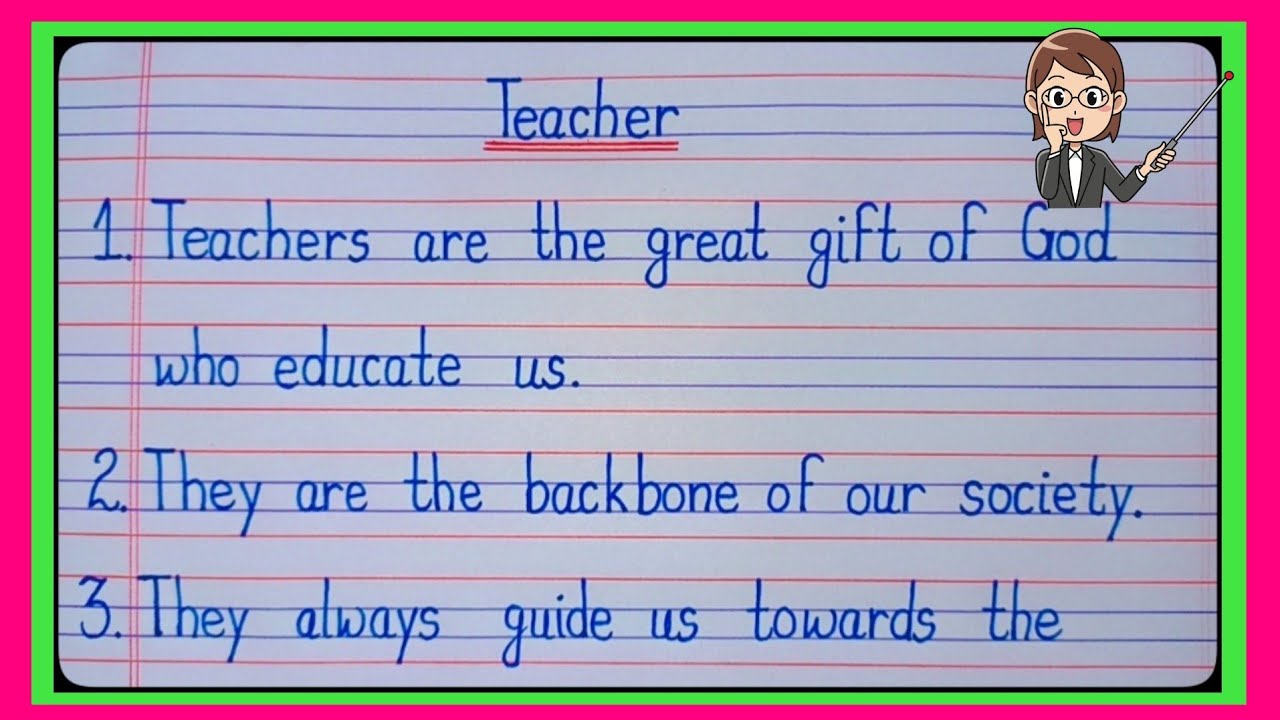 Teacher
1. Teachers are the great gift of God
who educate us.
2. They are the backbone of our society.
3. They always guide us towards the